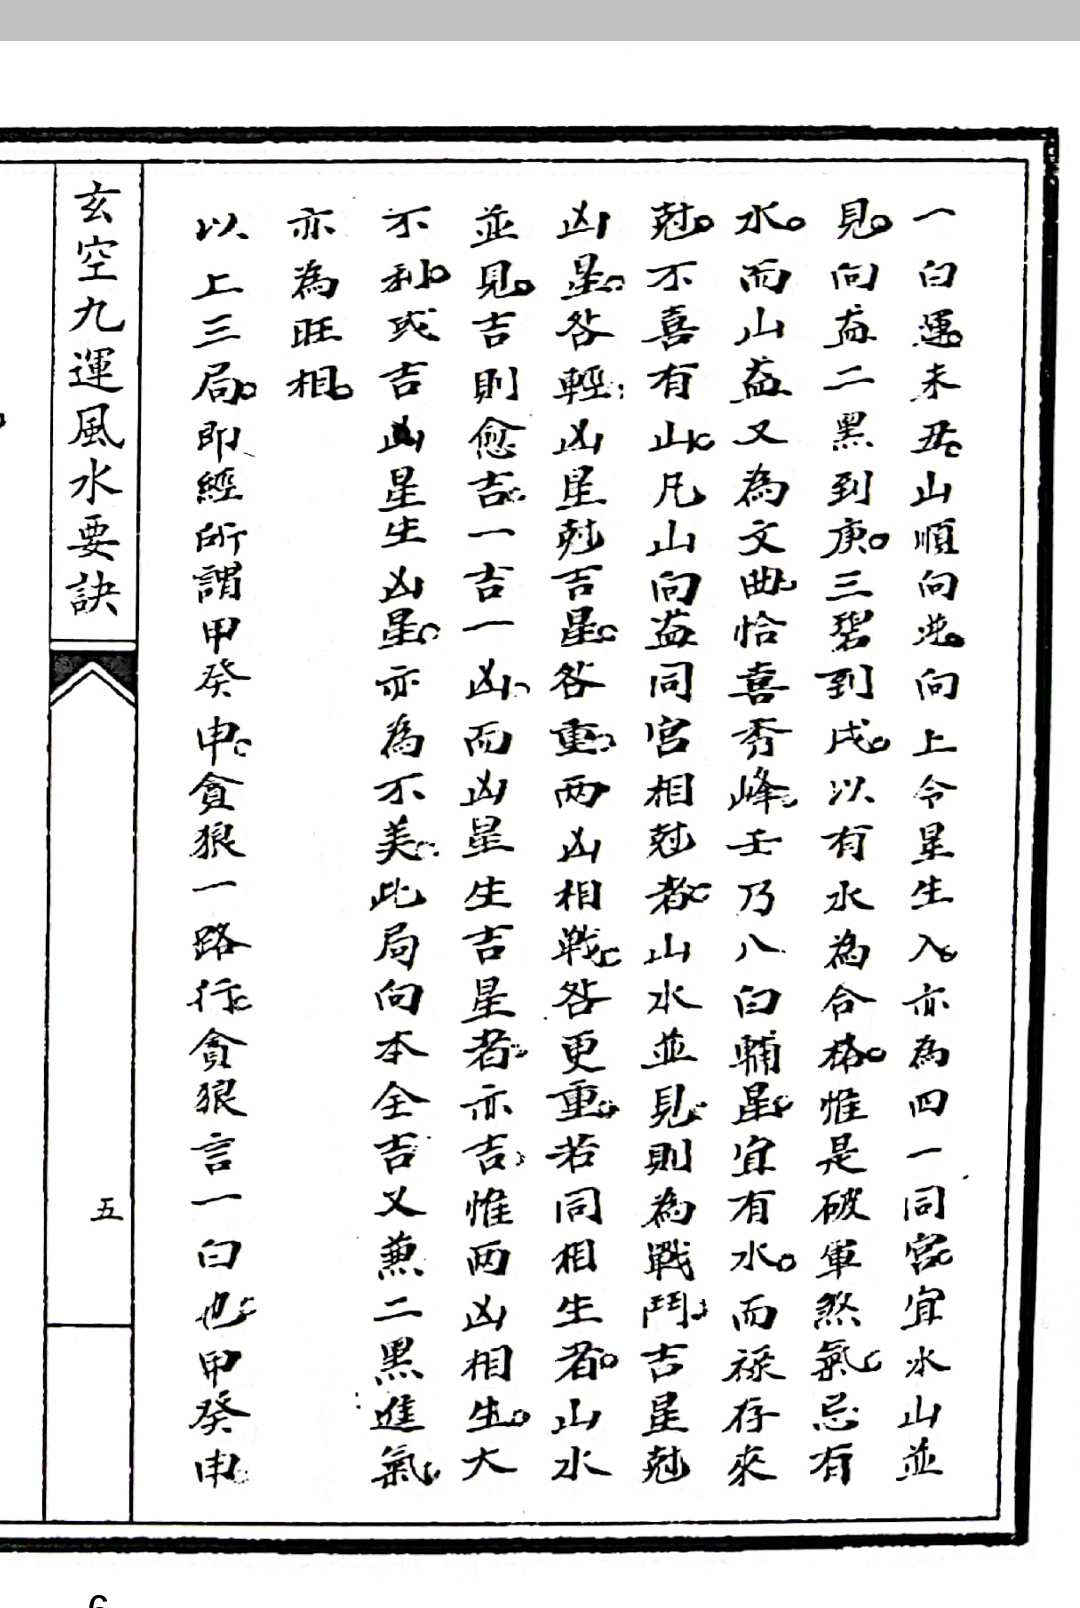 一白運。未丑。山順向逆。向上令星生入。亦為四一同宮。宜水山並
見。向盤二黑到庚。三碧到戌。以有水為合格。惟是破軍煞氣。忌有
水。而山盤又為文曲。恰喜秀峰。壬乃八白輔星。宜有水。而祿存來
尅。不喜有山。凡山向盤同宮相尅者。山水並見。則為戰鬥。吉星尅
凶星。咎輕。凶星尅吉星。咎重。兩凶相戰。咎更重。若同相生者。山水
並見。吉則愈吉。一吉一凶。而凶星生吉星者。亦吉。惟兩凶相生。大
不利。或吉凶星生凶星。亦為不美。此局向本全吉又兼二黑進氣。
亦為旺相。
以上三局。即經所謂甲癸申。貪狼一路行。貪狼言一白也。甲癸申。
玄空九運風水要訣
五
6